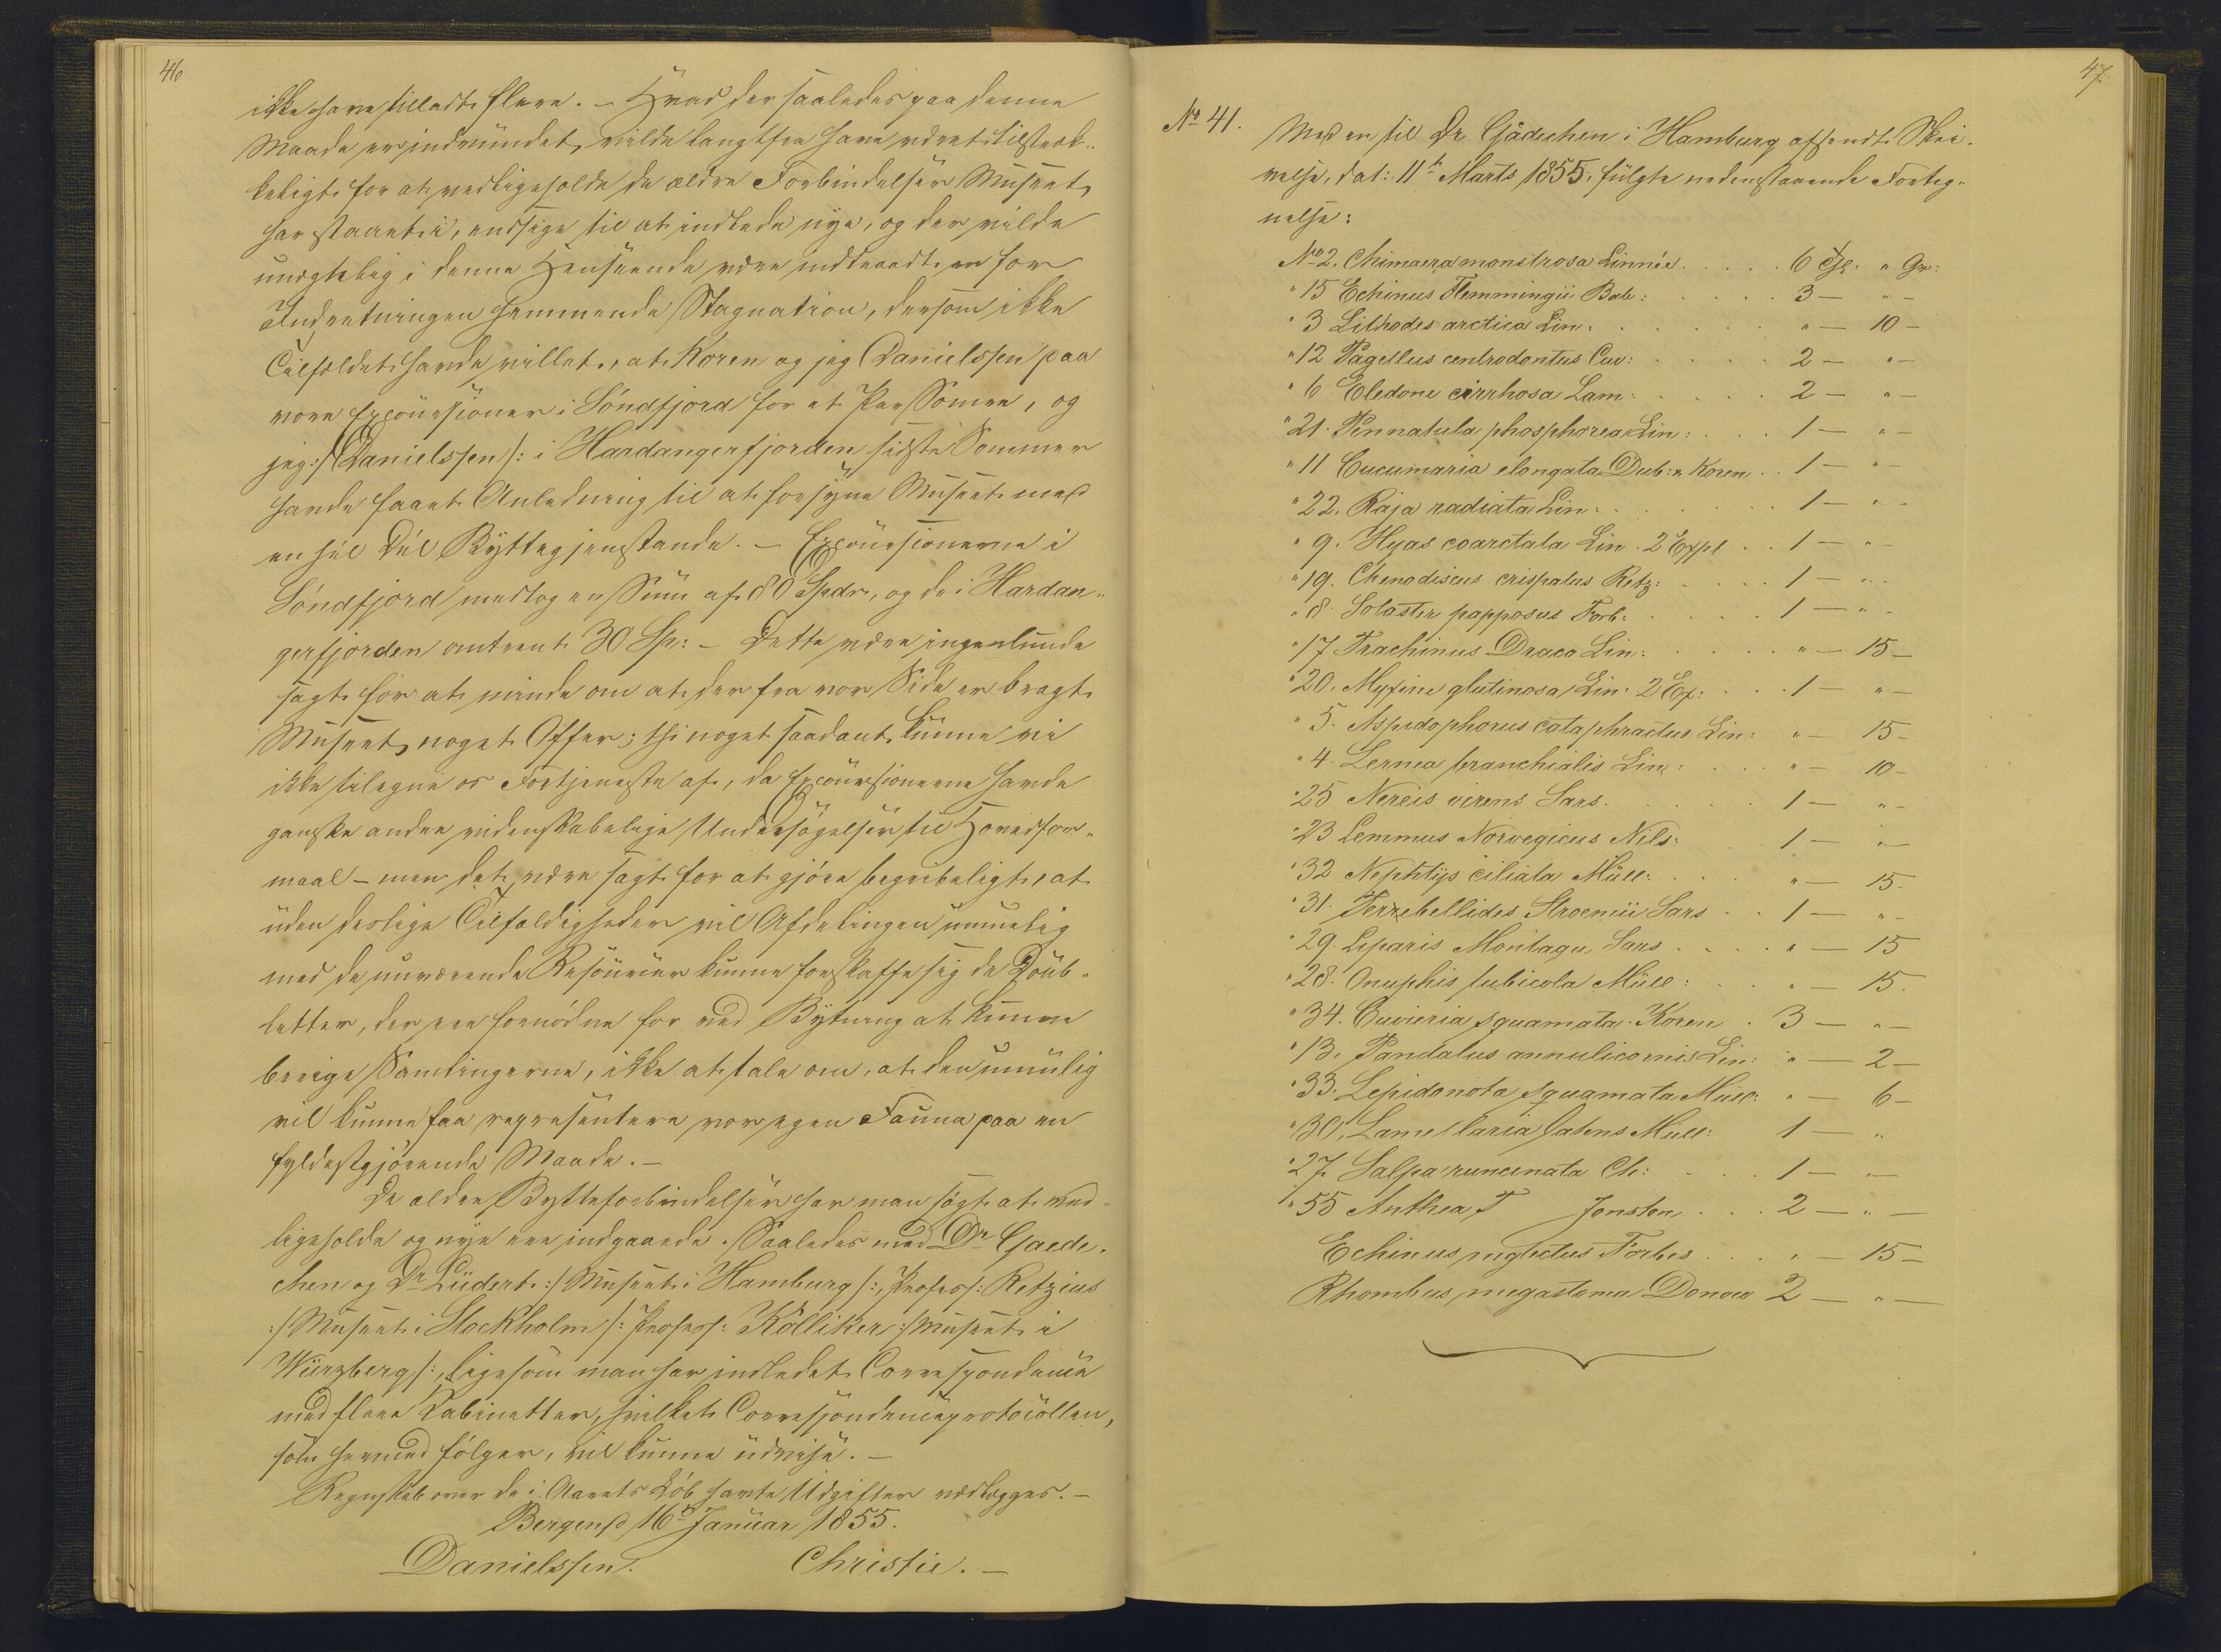 46
ikke have tilladt flere. – Hvad der saaledes paa denne
Maade er indvundet, vilde langtfra have været tilstræk„
keligt for at vedligeholde de ældre Forbindelser Museet
har staaet i, endsige til at indlede nye, og der vilde
unægtelig i denne Henseende være indtraadt en for
Indretningen hemmende Stagnation, dersom ikke
Tilfældet havde villet, at Koren og jeg Danielssen paa
vore Excoursioner i Söndfjord for et Par Somre, og
jeg :/ Danielssen /: i Hardangerfjorden sidste Sommer
havde faaet Anledning til at forsyne Museet med
en hel Del Byttegjenstande. – Excoursionerne i
Söndfjord medtog en Sum af 80 Spdr, og de i Hardan„
gerfjorden omtrent 30 Sp: – Dette være ingenlunde
sagt for at minde om at der fra vor Side er bragt
Museet noget Offer; thi noget saadant kunne vi
ikke tilegne os Fortjeneste af, da Excoursionerne havde
ganske andre videnskabelige Undersögelser til Hovedfor„
maal – men det være sagt for at gjöre begribeligt, at
uden deslige Tilfældigheder vil Afdelingen umuelig
med de nuværende Resourcer kunne forskaffe sig de Doub„
letter, der ere fornödne for ved Bytning at kunne
berige Samlingerne, ikke at tale om, at den umulig
vil kunne faa representere vor egen Fauna paa en
fyldestgjörende Maade. –
De ældre Bytteforbindelser har man sögt at ved„
ligeholde og nye ere indgaaede. Saaledes med Dr Gaede„
chen og Dr Lüdert :/ Museet i Hamburg /:, Profess: Retzius
:/ Museet i Stockholm /: Profess: Kölliker :/ Museet i
Würzberg /:, ligesom man har indledet Correspondence
med flere Kabinetter, hvilket Correspondenceprotocollen,
som hermed fölger, vil kunne udvise. –
Regnskab over de i Aarets Löb havte Udgifter vedlægges. –
Bergen d 16de Januar 1855.
Danielssen. Christie. –
47
No 41.
Med en til Dr Gädechen i Hamburg afsendt Skri„
velse, dat: 11te Marts 1855, fulgte nedenstaaende Forteg„
nelse:
No 2. Chimaera monstrosa Linnée . . . . . 6 " Gr:
" 15 Echinus Flemmingii Bale: . . . . . 3 — " —
" 3 Lithodes arctica Lin: . . . . . " — 10 —
" 12 Pagellus centrodontus Cuv: . . . . . 2 — " —
" 6 Eledone cirrhosa Lam: . . . . . 2 — " —
" 21. Pennatula phosphorea Lin: . . . . 1 — " —
" 11 Cucumaria elongata Dub: & Koren . . 1 — " —
" 22. Raja radiata Lin: . . . . . . 1 — " —
" 9. Hyas coarctata Lin. 2 Expl . . 1 — " —
" 19. Chenodiscus crispatus Retz: . . . . . 1 — " —
" 8. Solaster papposus Forb: . . . . . 1 — " —
" 17 Trachinus Draco Lin: . . . . . " — 15 —
" 20. Myxine glutinosa Lin: 2 Ex: . . . . 1 — " —
" 5. Aspidophorus cataphractus Lin: " — 15 —
" 4. Lernea branchialis Lin: . . . . " — 10 —
" 25 Nereis virens Sars. . . . . . 1 — " —
" 23 Lemmus Norvegicus Nils: 1 — " —
" 32 Nephtys ciliata Müll: . . . . " — 15
" 31. Terrebellides Stroemii Sars . . 1 — " —
" 29. Liparis Montagu Sars . . . . " — 15
" 28. Onuphis tubicola Müll: . . . " — 15.
" 34. Cuvieria squamata. Koren . 3 — " —
" 13. Pandalus annulicornis Lin: " — 2 —
" 33. Lepidonota squamata Müll: " — 6 —
" 30. Lamellaria latens Müll: 1 — "
" 27. Salpa runcinata Ch: . . . 1 — " —
" 55 Anthea T Jonston . . . 2 — " —
Echinus neglectus Forbes . . . " — 15 —
Rhombus megastoma Donov 2 — " —